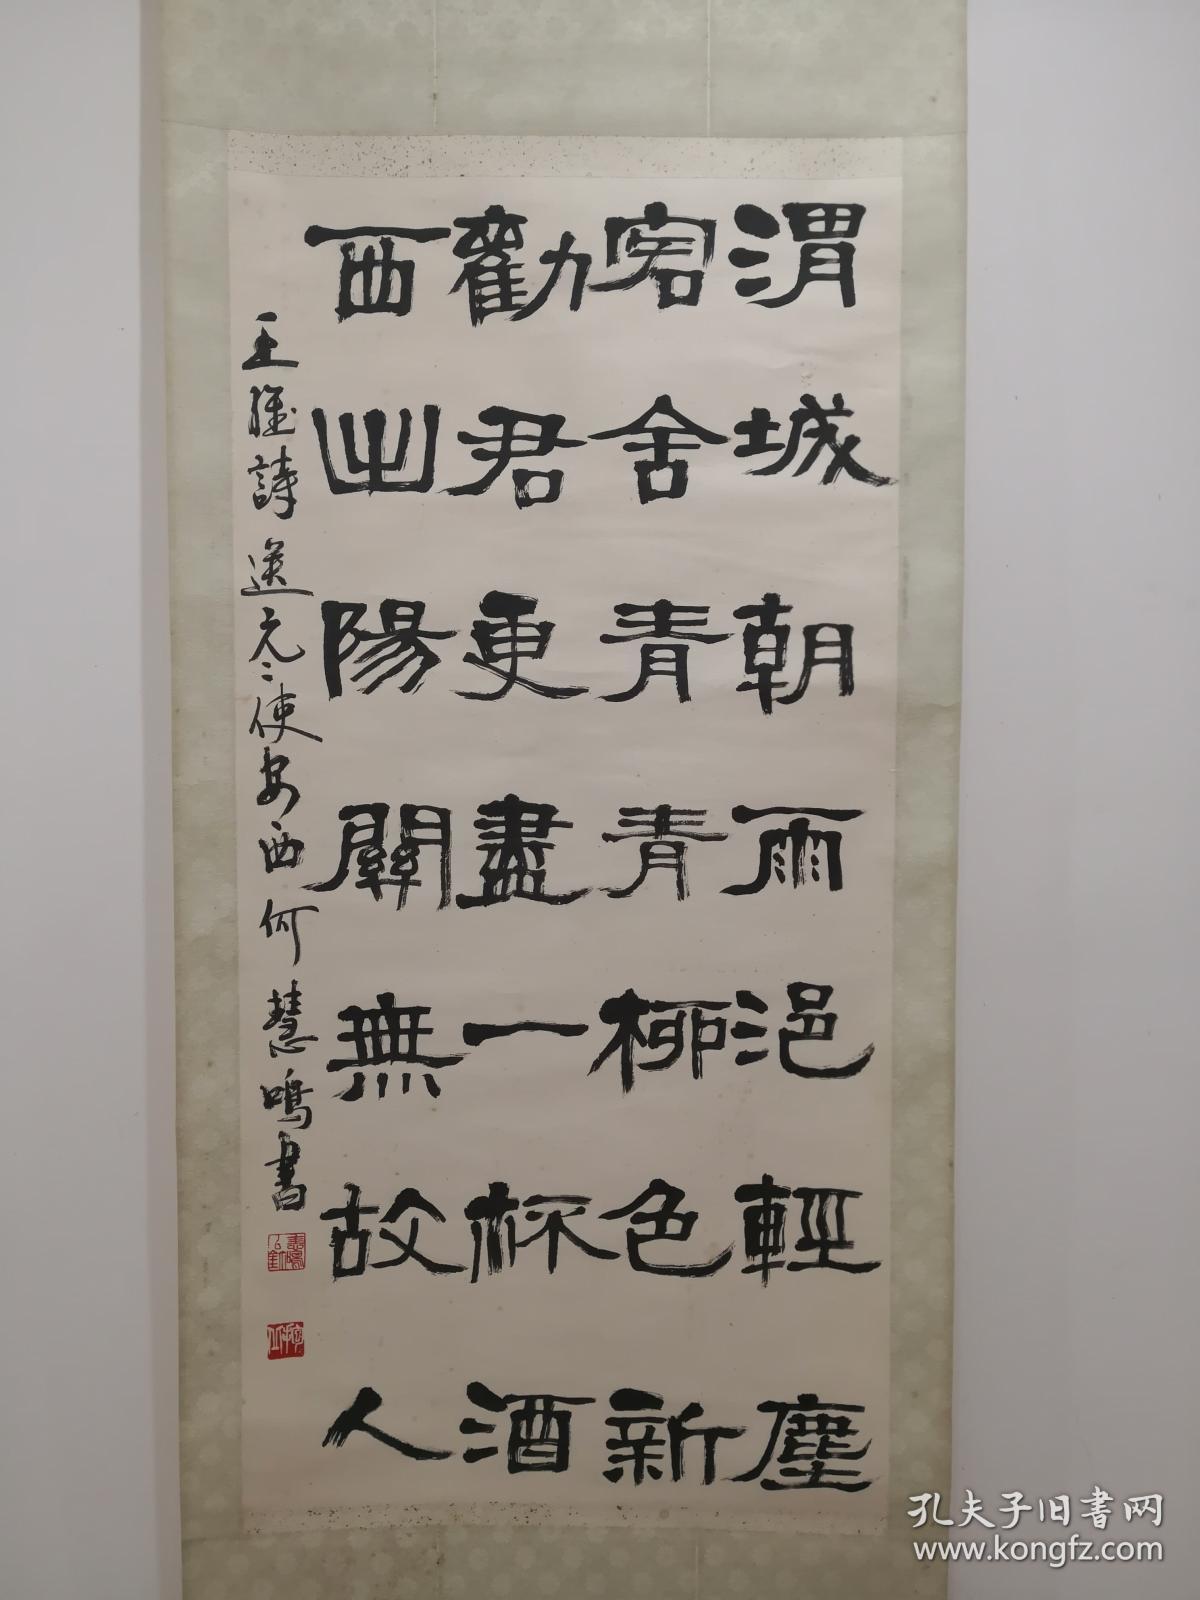 渭城朝雨浥輕塵
客舍青青柳色新
勸君更盡一杯酒
西出陽關無故人
王維詩送元二使安西何慧鳴書
孔夫子旧书网
www.kongfz.com